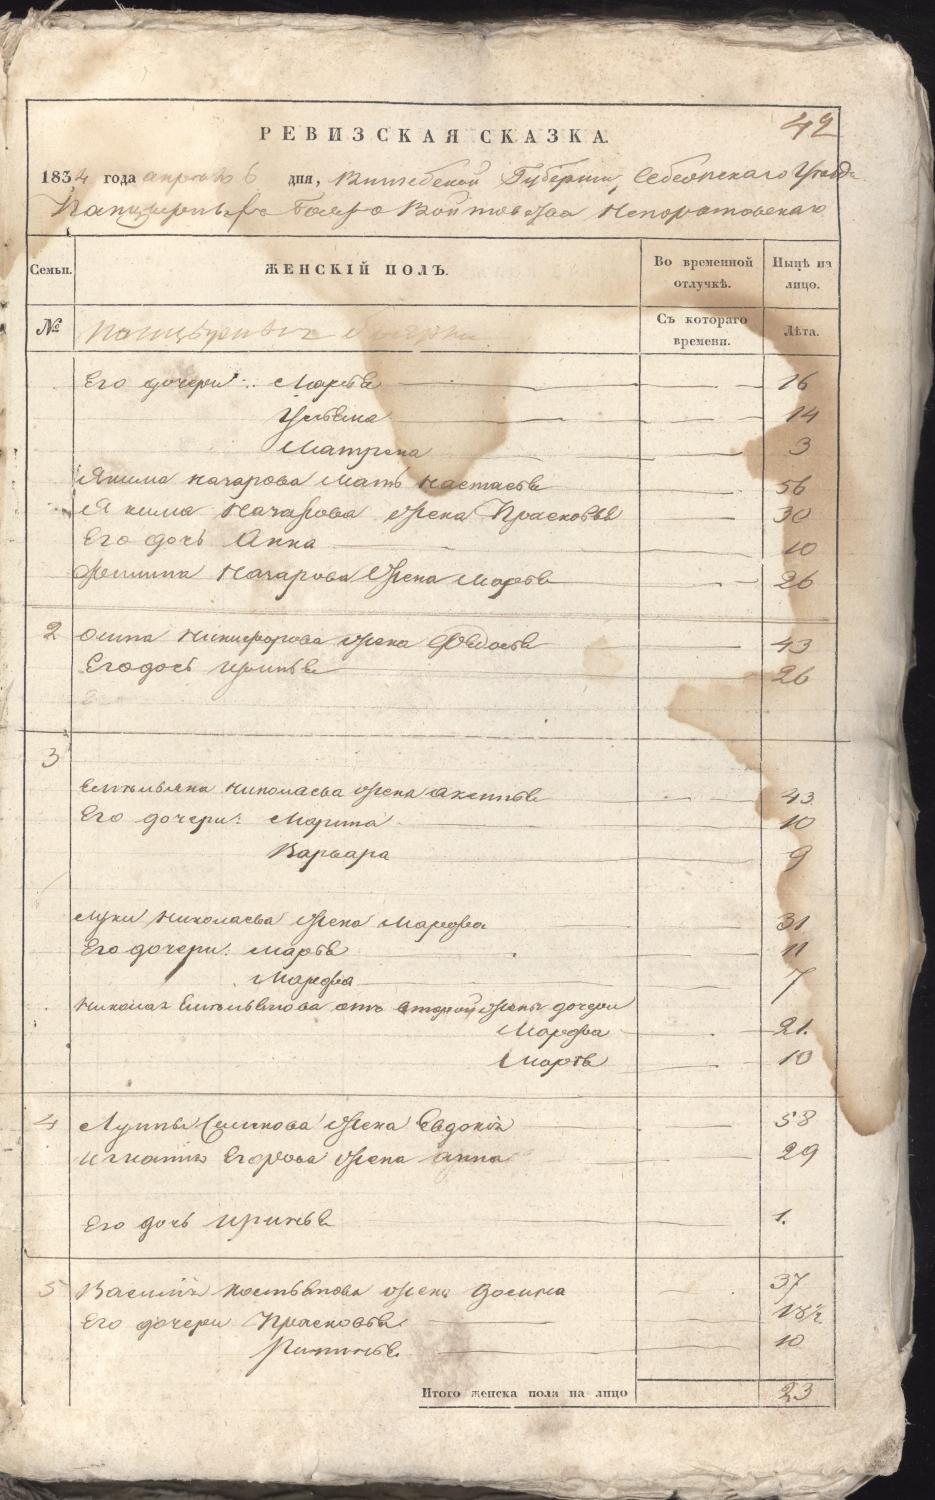 42
РЕВИЗСКАЯ СКАЗКА.
1834 года апреля 6 дня, Витебской Губернии, Себежскаго Уезда
Семьи. ЖЕНСКІЙ ПОЛЪ. Во временной отлучкѣ. Нынѣ на лицо.
№ Съ котораго времени. Лѣта.
Его дочери: Марья 16
Ульяна 14
Матрена 3
Якима Назарова мать Настасья 56
Якима Назарова жена Прасковья 30
Его дочь Анна 10
Филипа Назарова жена Марья 26
2 Осипа Никифорова жена Федосья 43
Его дочь Иринья 26
3
Емельяна Николаева жена Аксинья 43
Его дочери: Марина 10
Варвара 9
Луки Николаева жена Марфа 31
Его дочери: Марья 11
Марфа 7
Николая Емельянова отъ второй жены дочери
Марфа 21
Марья 10
4 Лупы Семенова жена Евдокия 58
Игнатия Егорова жена Анна 29
Его дочь Иринья 1.
5 Василия жена 37
Его дочери Прасковья
10
Итого женска пола на лицо 23